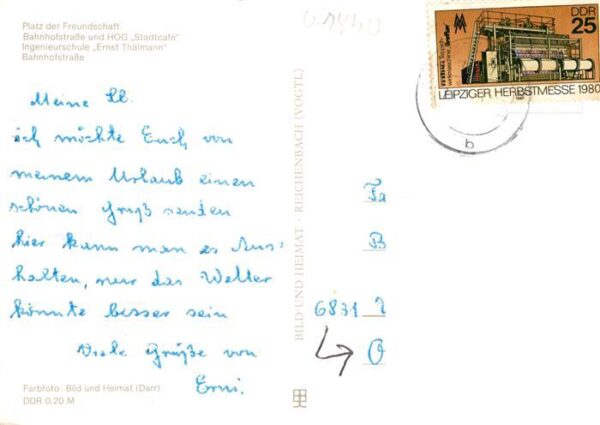 Platz der Freundschaft
Bahnhofstraße und HOG „Stadtcafé"
Ingenieurschule „Ernst Thälmann"
Bahnhofstraße
Meine Ll.
ich möchte Euch von
meinem Urlaub einen
schönen Gruß senden
hier kann man es Aus-
halten, nur das Wetter
könnte besser sein
Viele Grüße von
Erni.
Farbfoto: Bild und Heimat (Darr)
DDR 0,20 M
BILD UND HEIMAT · REICHENBACH (VOGTL)
DDR
25
LEIPZIGER HERBSTMESSE 1980
b
Fa
B
6831
O